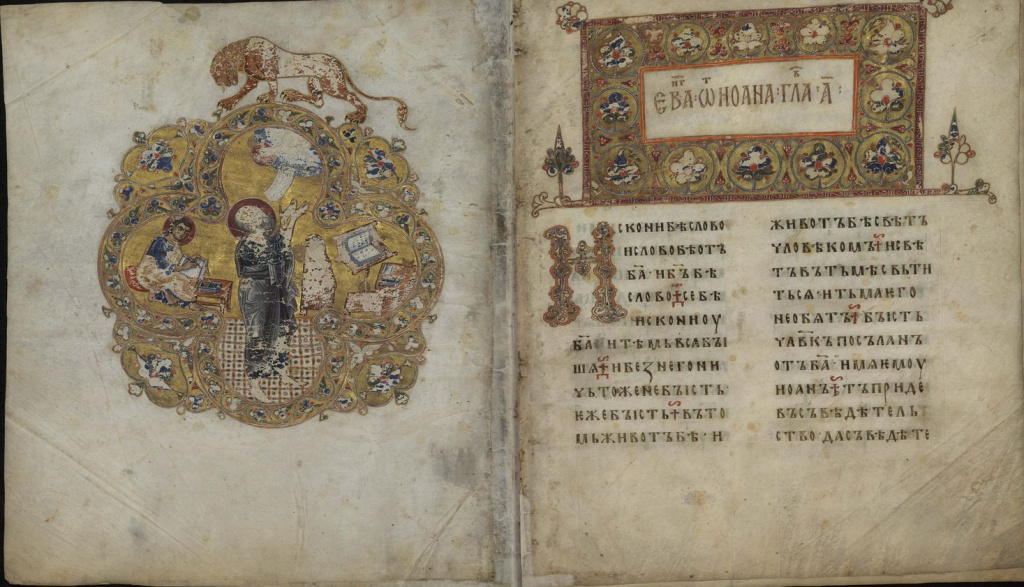 ЕВⷢ҇А · ѾНОАНА · ГЛⷡ҇А · А҃ :
ИСКОНИ БѢ СЛОВО
И СЛОВО БѢ ОТЪ
Б҃А · И Б҃Ъ БѢ
СЛОВО СЕ БѢ
ИСКОНИ ОУ
Б҃А И ТѢМЬ ВСА БЫ
ШѦ И БЕЗ НЕГО НИ
ЧЬТОЖЕ НЕ БЫСТЬ
ѤЖЕ БЫСТЬ ВЪ ТО
МЬ ЖИВОТЪ БѢ · И
ЖИВОТЪ БѢ СВѢТЪ
ЧЛОВѢКОМЪ И СВѢ
ТЪ ВЪ ТЬМѢ СВЬТИ
ТЬСѦ · И ТЬМА ѤГО
НЕ ОБѦТЪ БЫСТЬ
ЧЛ҃ВКЪ ПОСЪЛАНЪ
ОТЪ Б҃А · ИМѦ ѤМОУ
ИОАНЪ ТЪ ПРИДЕ
ВЪ СЪВѢДѢТЕЛЬ
СТВО · ДА СЪВѢДѢТЕ